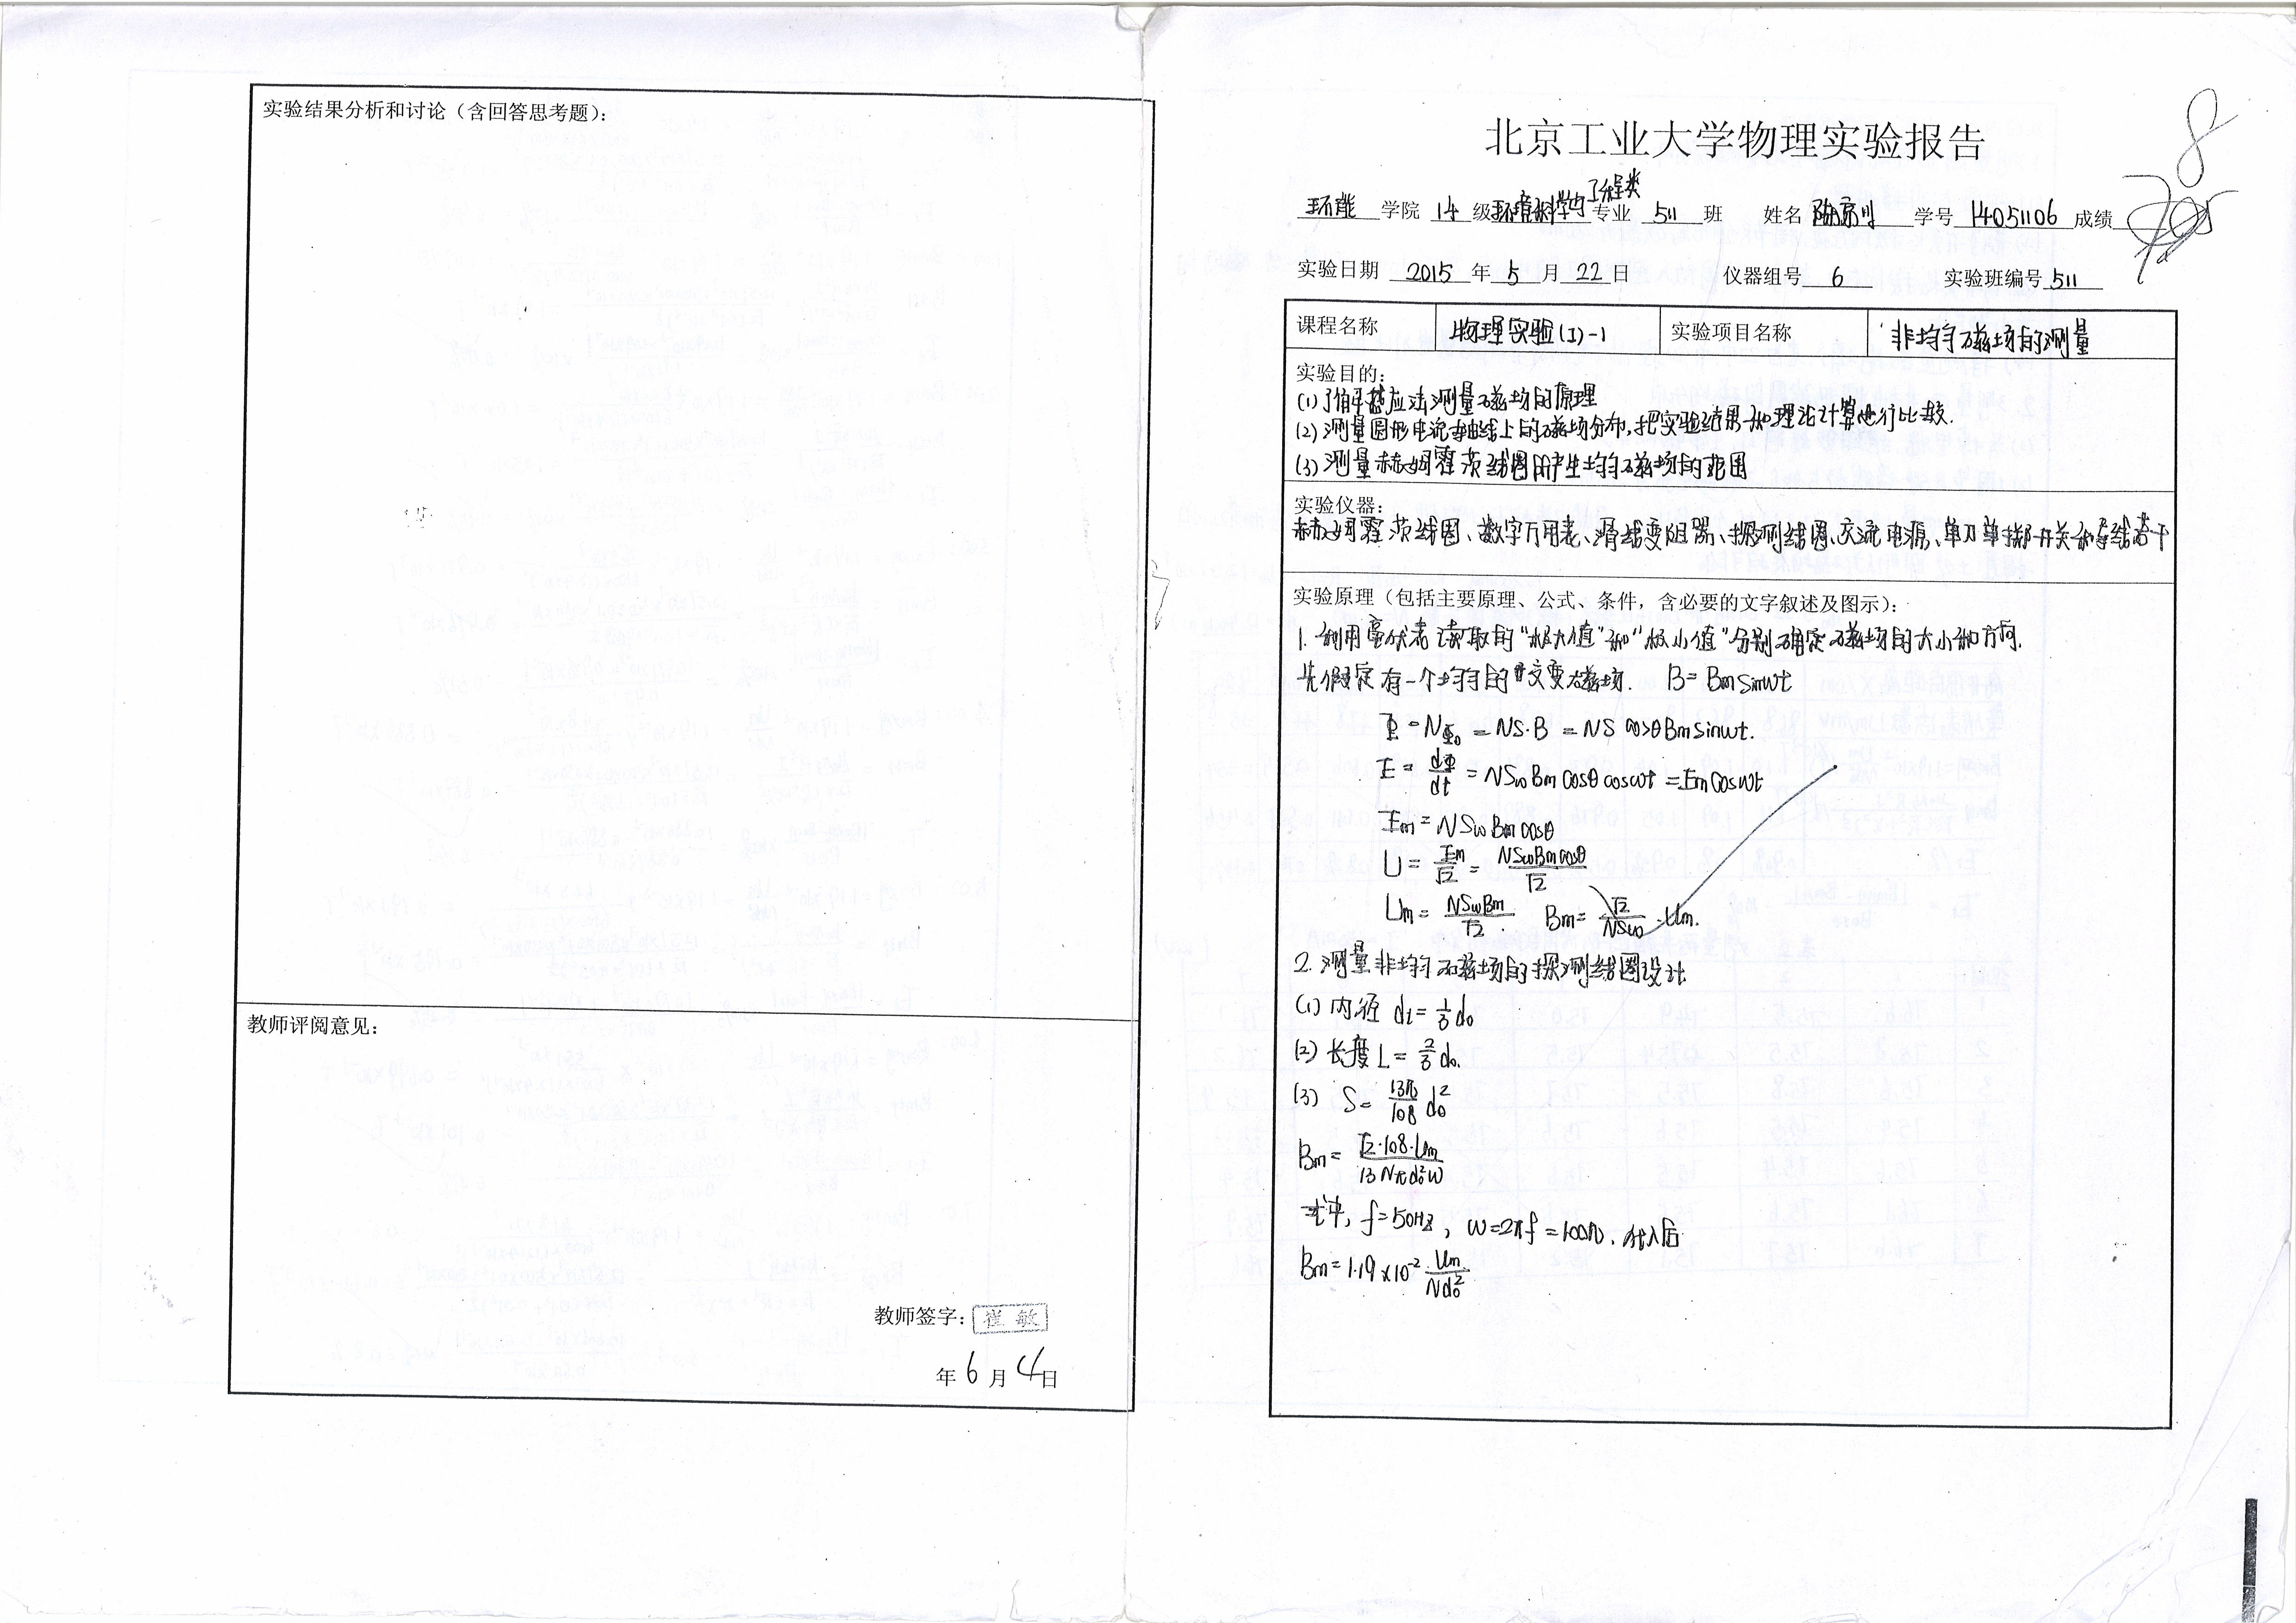 实验结果分析和讨论（含回答思考题）：
教师评阅意见：
教师签字：崔敏
年 6 月 4 日
北京工业大学物理实验报告
8
环能 学院 14 级 环境科学与工程类 专业 511 班 姓名 学号 14051106 成绩
实验日期 2015 年 5 月 22 日 仪器组号 6 实验班编号 511
课程名称 物理实验(I)-1 实验项目名称 非均匀磁场的测量
实验目的：
(1) 了解感应法测量磁场的原理
(2) 测量圆形电流轴线上的磁场分布，把实验结果和理论计算进行比较.
(3) 测量赫姆霍茨线圈所产生均匀磁场的范围
实验仪器：
赫姆霍茨线圈、数字万用表、滑线变阻器、探测线圈、交流电源、单刀单掷开关和导线若干
实验原理（包括主要原理、公式、条件，含必要的文字叙述及图示）：
1. 利用毫伏表读取的“极大值”和“极小值”分别确定磁场的大小和方向.
先假定有一个均匀的交变磁场. B=Bmsinwt
Φ = NΦ₀ = NS·B = NS cosθBmsinwt.
E = dΦ/dt = NSwBmcosθcoswt = Emcoswt
Em = NSwBmcosθ
U = Em/√2 = NSwBmcosθ/√2
Um = NSwBm/√2 Bm = √2/NSw · Um.
2. 测量非均匀磁场的探测线圈设计
(1) 内径 di = 1/3 d₀
(2) 长度 L = 2/3 d₀.
(3) S = 13π/108 d₀²
Bm = √2·108·Um/13Nπd₀²w
式中, f=50Hz, w=2πf=100π. 代入后
Bm = 1.19×10⁻² Um/Nd₀²